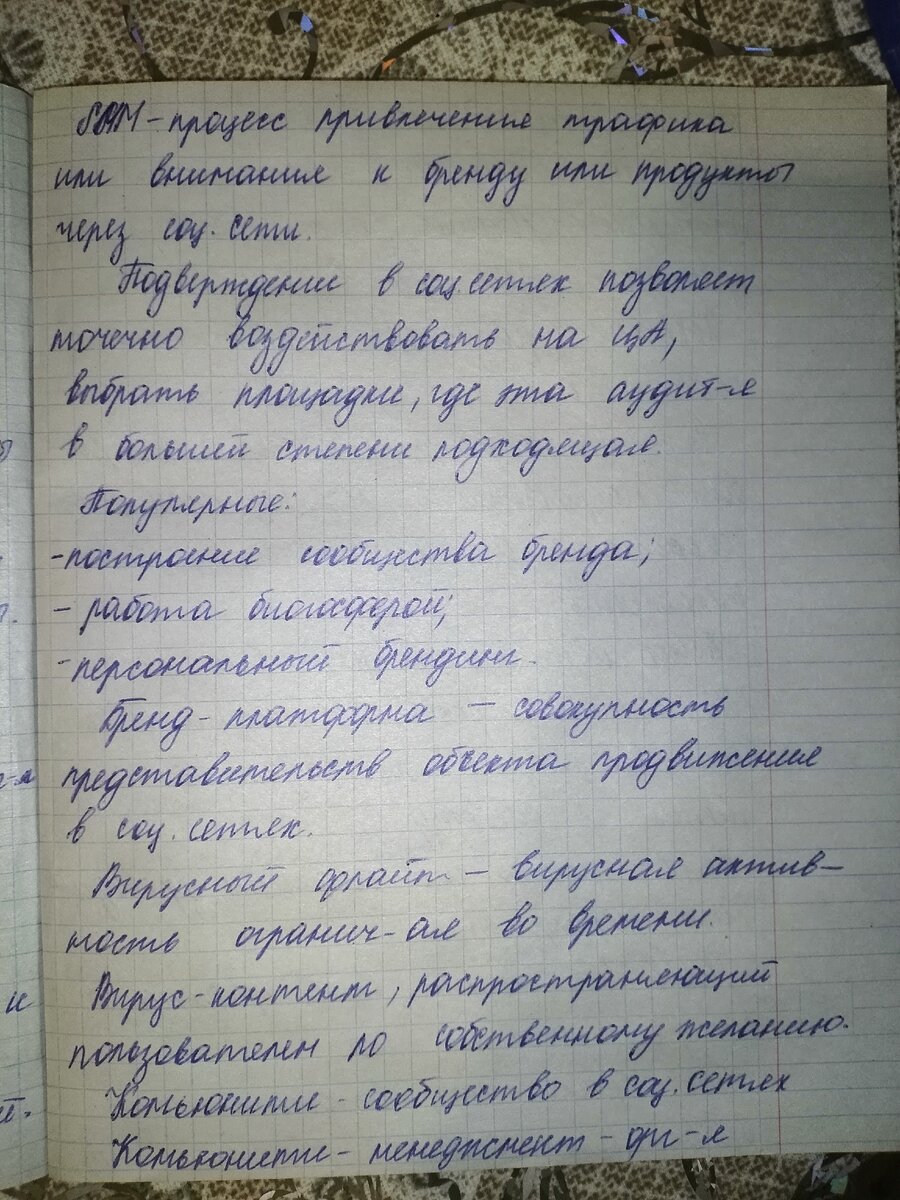 SMM - процесс привлечения трафика
или внимания к бренду или продукты
через соц. сети.
Подверждение в соц сетях позволяет
точечно воздействовать на ЦА,
выбрать площадки, где эта аудит-я
в большей степени подходящая.
Популярные:
- построение сообщества бренда;
- работа блогосферой;
- персональный брендинг.
Бренд - платформа — совокупность
представительств объекта продвижения
в соц. сетях.
Вирусный флайт — вирусная актив-
ность огранич-ая во времени.
Вирус - контент, распространяющий
пользователен по собственному желанию.
Комьюнити - сообщество в соц. сетях
Комьюнити - менеджмент - орг-я